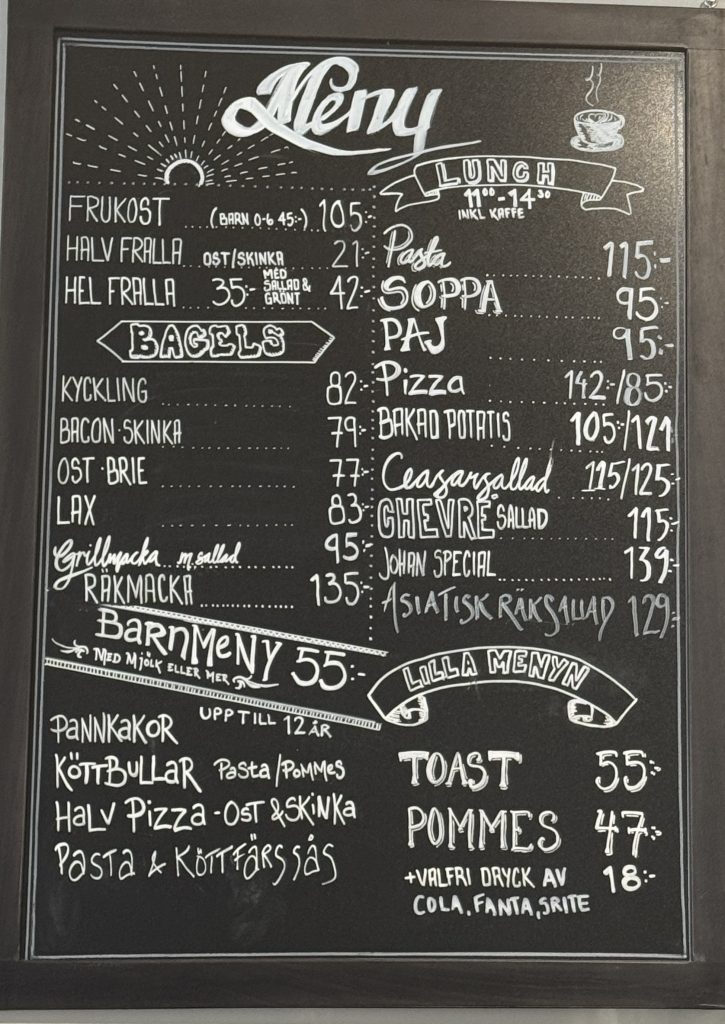 Meny
FRUKOST (BARN 0-6 45:-) 105:-
HALV FRALLA OST/SKINKA 21:-
HEL FRALLA 35:- MED SALLAD & GRÖNT 42:-
BAGELS
KYCKLING 82:-
BACON·SKINKA 79:-
OST·BRIE 77:-
LAX 83:-
Grillmacka m sallad 95:-
RÄKMACKA 135:-
BarnMeNY 55:-
MED MJÖLK ELLER MER
UPP TILL 12 ÅR
PaNNKaKOR
KÖTTBULLAR Pasta/Pommes
HALV Pizza - OST & SKiNKa
Pasta & KÖTTFÄRSSÅS
LUNCH
11⁰⁰-14³⁰
INKL KAFFE
Pasta 115:-
SOPPA 95:-
PAJ 95:-
Pizza 142:-/85:-
BAKAD POTATIS 105:-/121
Ceasarsallad 115/125:-
CHEVRÉ SALLAD 115:-
JOHAN SPECIAL 139:-
ASIATISK RÄKSALLAD 129:-
LILLA MENYN
TOAST 55:-
POMMES 47:-
+VALFRI DRYCK AV 18:-
COLA, FANTA, SRITE